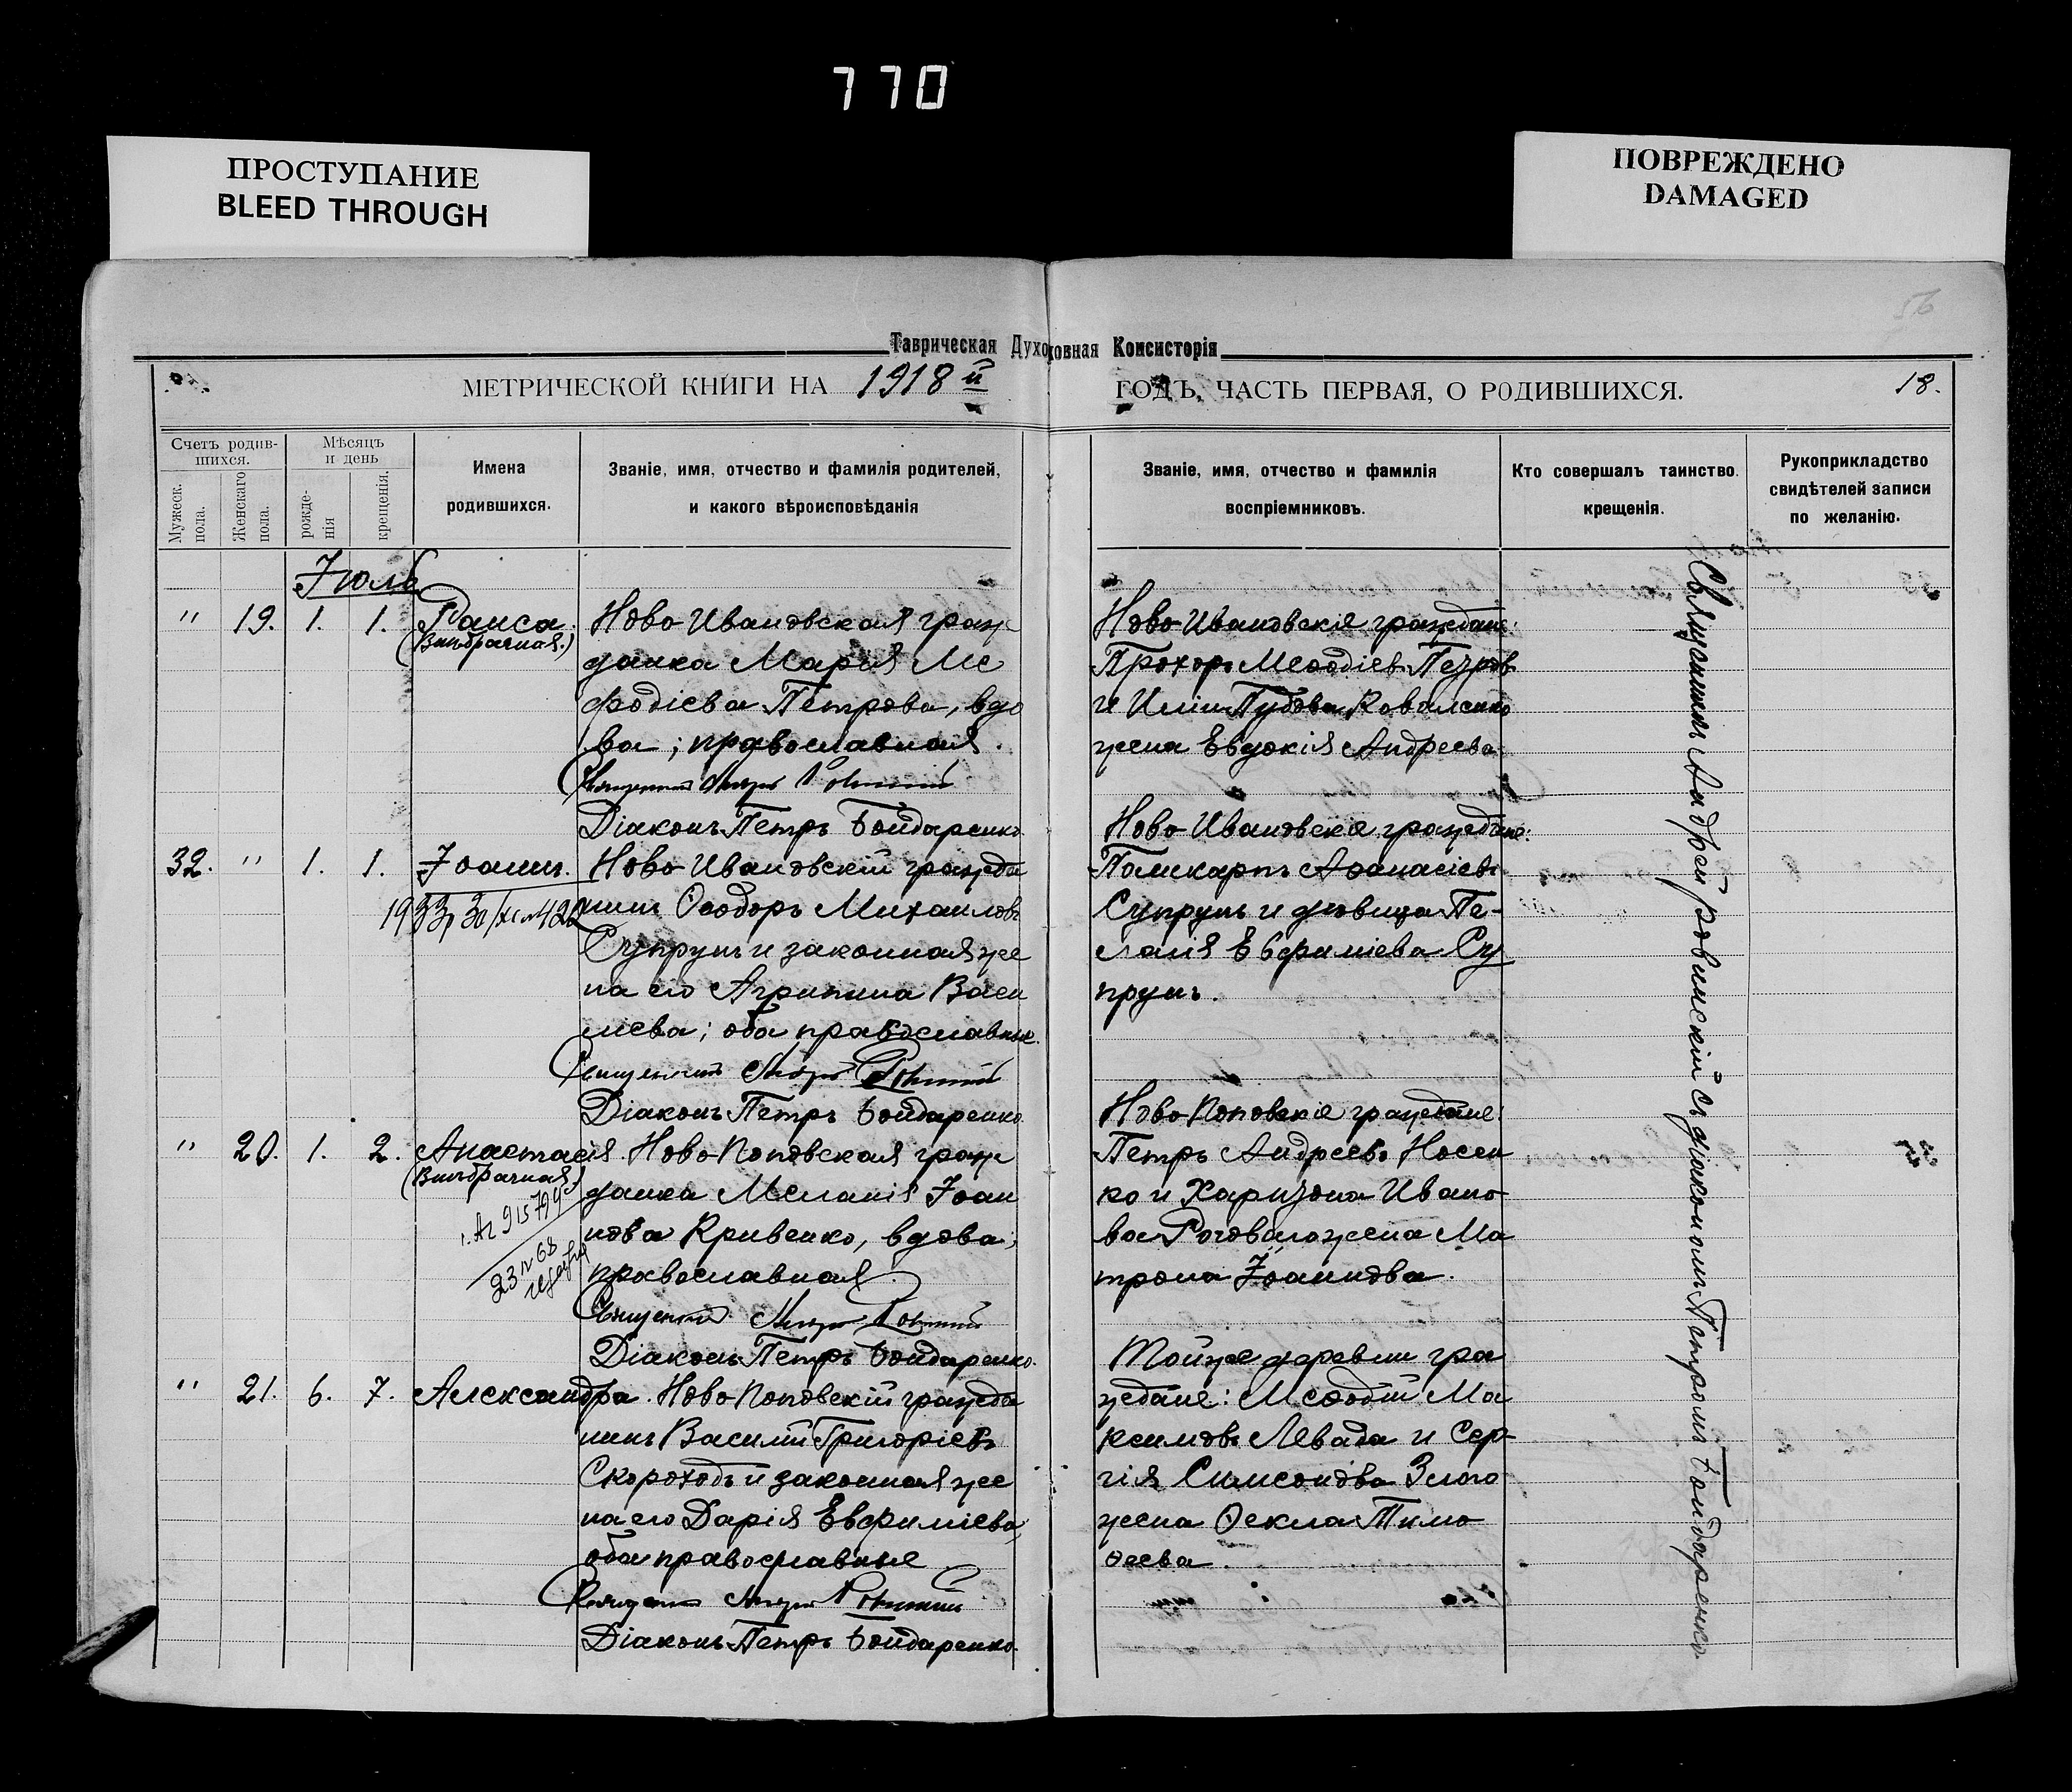 770
ПРОСТУПАНИЕ
BLEED THROUGH
ПОВРЕЖДЕНО
DAMAGED
56
Таврическая Духовная Консисторія
МЕТРИЧЕСКОЙ КНИГИ НА 1918 й ГОДЪ, ЧАСТЬ ПЕРВАЯ, О РОДИВШИХСЯ.
18.
Счетъ родив-
шихся.
Мужеск.
пола.
Женскаго
пола.
Мѣсяцъ
и день
рожде-
нія
крещенія.
Имена
родившихся.
Званіе, имя, отчество и фамилія родителей,
и какого вѣроисповѣданія
Званіе, имя, отчество и фамилія
воспріемниковъ.
Кто совершалъ таинство
крещенія.
Рукоприкладство
свидѣтелей записи
по желанію.
Іюль
" 19. 1. 1. Раиса
(Внѣбрачная.)
Ново-Ивановская граж
данка Марія Ме
фодіева Петрова, вдо
ва; православная.
Священникъ Андрей
Діаконъ Петръ Бондаренко
Ново-Ивановскіе граждане:
Прохоръ Меѳодіевъ Петровъ
и Коваленко
жена Евдокія Андреева
32. " 1. 1. Іоаннъ.
Ново-Ивановскій гражда
нинъ Ѳеодоръ Михаиловъ
Супрунъ и законная же
на его Агрипина Васи
лиева; оба православные.
Священникъ Андрей
Діаконъ Петръ Бондаренко
Ново-Ивановскіе граждане:
Поликарпъ Аѳанасіевъ
Супрунъ и дѣвица Пе-
лагія Евфиміева Су
прунъ.
" 20. 1. 2. Анастасія.
(Внѣбрачная)
Ново-Поповская граж
данка Меланія Іоан
нова Кривенко, вдова;
православная.
Священникъ Андрей
Діаконъ Петръ Бондаренко.
Ново-Поповскіе граждане:
Петръ Андреевъ Носен
ко и Харитона Ивано
ва жена Ма
трона Іоаннова.
" 21. 6. 7. Александра.
Ново-Поповскій гражда
нинъ Василій Григоріевъ
Скороходъ и законная же
на его Дарія Евфиміева,
оба православные
Священникъ Андрей
Діаконъ Петръ Бондаренко.
Той же деревни гра
ждане: Меѳодій Ма
ксимовъ Левада и Сер-
гія Симеонова
жена Ѳекла Тимо
ѳеева.
Священникъ Андрей съ діакономъ Петромъ Бондаренко